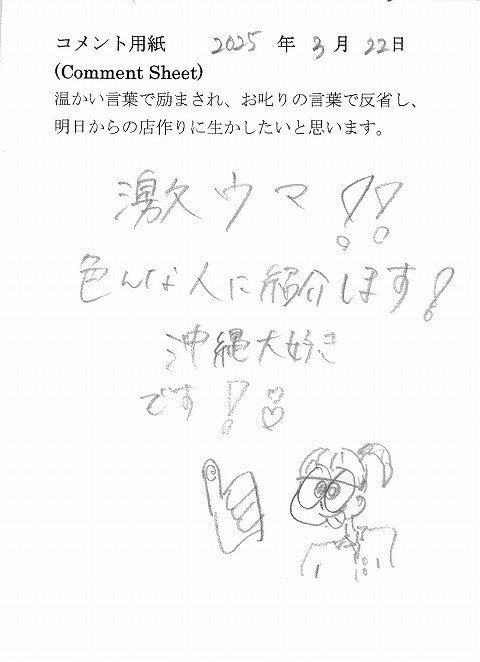 コメント用紙 2025 年 3月 22日
(Comment Sheet)
温かい言葉で励まされ、お叱りの言葉で反省し、
明日からの店作りに生かしたいと思います。
激ウマ!!
色んな人に紹介します!
沖縄大好き
です!♡♡